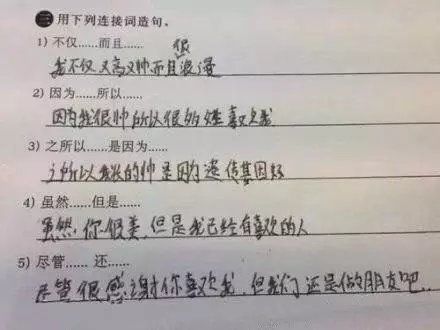 三 用下列连接词造句。
1) 不仅……而且……
我不仅又高又帅而且很浪漫
2) 因为……所以……
因为我很帅所以很多女生喜欢我
3) 之所以……是因为……
之所以我长的帅是因为遗传基因好
4) 虽然……但是……
虽然,你很美,但是我已经有喜欢的人
5) 尽管…… 还……
尽管很感谢你喜欢我,但我们还是做朋友吧...